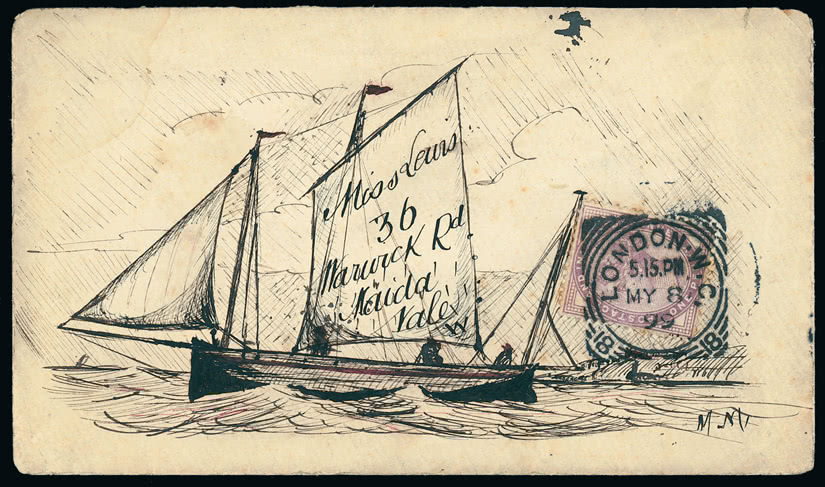 Miss Lewis
36
Warwick Rd
Maida
Vale
W
LONDON.W.C
5.15.PM
MY 8
99
18 18
M